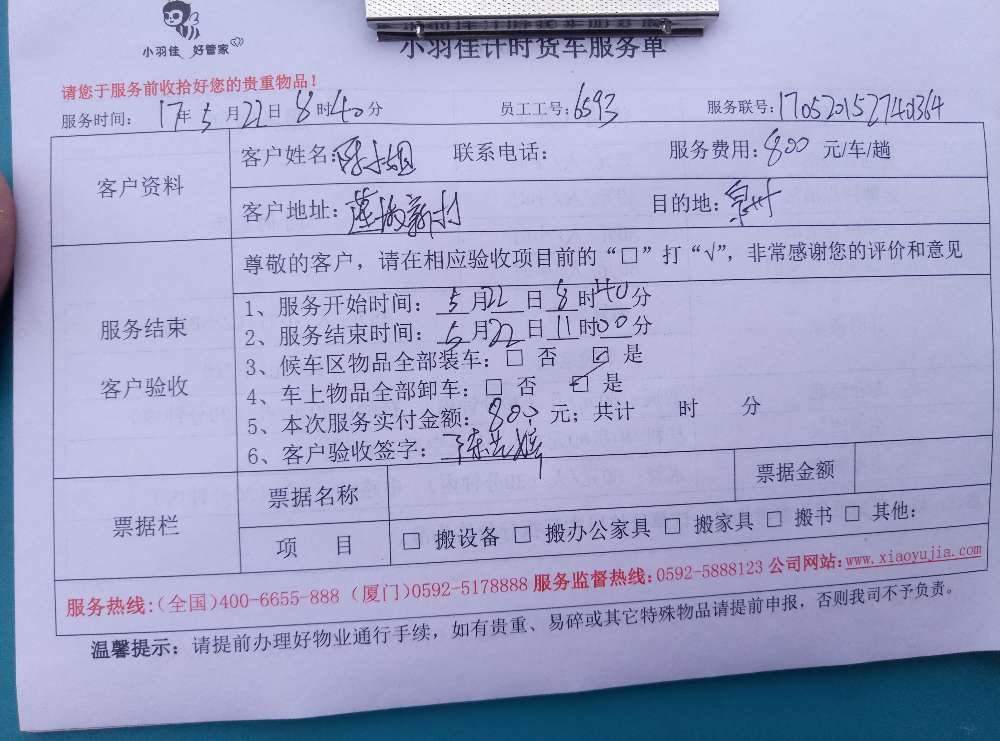 小羽佳 好管家
小羽佳计时货车服务单
请您于服务前收拾好您的贵重物品！
服务时间： 17年 5月22日 8时40分 员工工号：6593 服务联号：1705201527401364
客户资料
客户姓名：陈小姐 联系电话： 服务费用：800 元/车/趟
客户地址：莲坂新村 目的地：泉州
服务结束
客户验收
尊敬的客户，请在相应验收项目前的“□”打“√”，非常感谢您的评价和意见
1、服务开始时间： 5月22日 8时40分
2、服务结束时间： 5月22日11时00分
3、候车区物品全部装车：□ 否 ☑ 是
4、车上物品全部卸车：□ 否 ☑ 是
5、本次服务实付金额：800 元；共计 时 分
6、客户验收签字：
票据栏
票据名称 票据金额
项 目 □ 搬设备 □ 搬办公家具 □ 搬家具 □ 搬书 □ 其他：
服务热线：（全国）400-6655-888（厦门）0592-5178888 服务监督热线：0592-5888123 公司网站：www.xiaoyujia.com
温馨提示：请提前办理好物业通行手续，如有贵重、易碎或其它特殊物品请提前申报，否则我司不予负责。